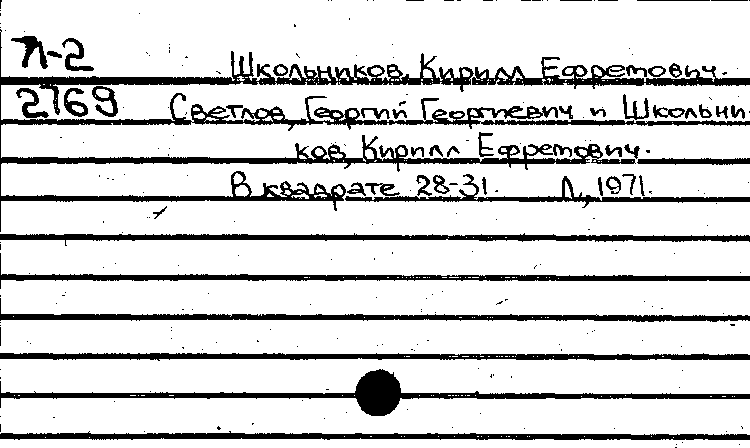 Л-2
Школьников, Кирилл Ефремович.
2769
Светлов, Георгий Георгиевич и Школьни-
ков, Кирилл Ефремович.
В квадрате 28-31. Л., 1971.